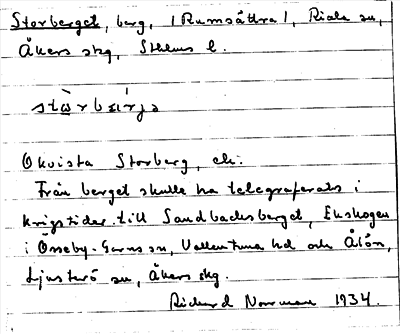 Storberget, berg, (Rumsättra), Riala sn,
Åkers skg, Sthlms l.
Ökvista Storberg, ek.
Från berget skulle ha telegraferats i
krigstider till Sandbacksberget, Ekskogen
i Össeby-Garns sn, Vallentuna hd och Åsön,
Ljusterö sn, Åkers skg.
Richard Norrman 1934.